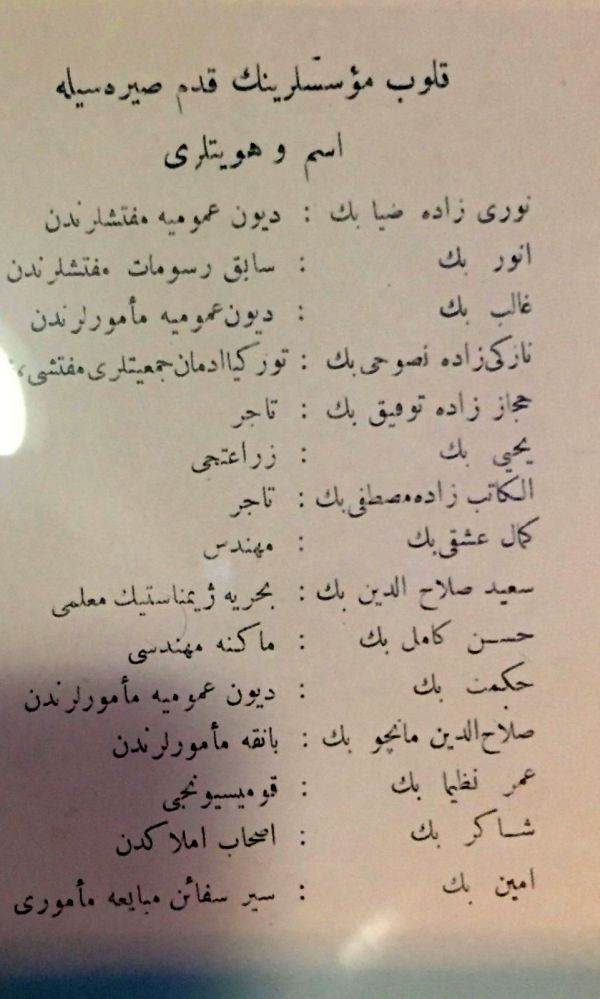 قلوب مؤسسلرينك قدم صيره‌سيله
اسم و هويتلرى
نورى زاده ضيا بك : ديون عموميه مفتشلرندن
انور بك : سابق رسومات مفتشلرندن
غالب بك : ديون عموميه مأمورلرندن
نازكى زاده نصوحى بك : توركيا ادمان جمعيتلرى مفتشى،
حجاز زاده توفيق بك : تاجر
يحيى بك : زراعتجى
الكاتب زاده مصطفى بك : تاجر
كمال عشقى بك : مهندس
سعيد صلاح الدين بك : بحريه ژيمناستيك معلمى
حسن كامل بك : ماكنه مهندسى
حكمت بك : ديون عموميه مأمورلرندن
صلاح الدين مانچو بك : بانقه مأمورلرندن
عمر نظيما بك : قوميسيونجى
شاكر بك : اصحاب املاكدن
امين بك : سير سفائن مبايعه مأمورى